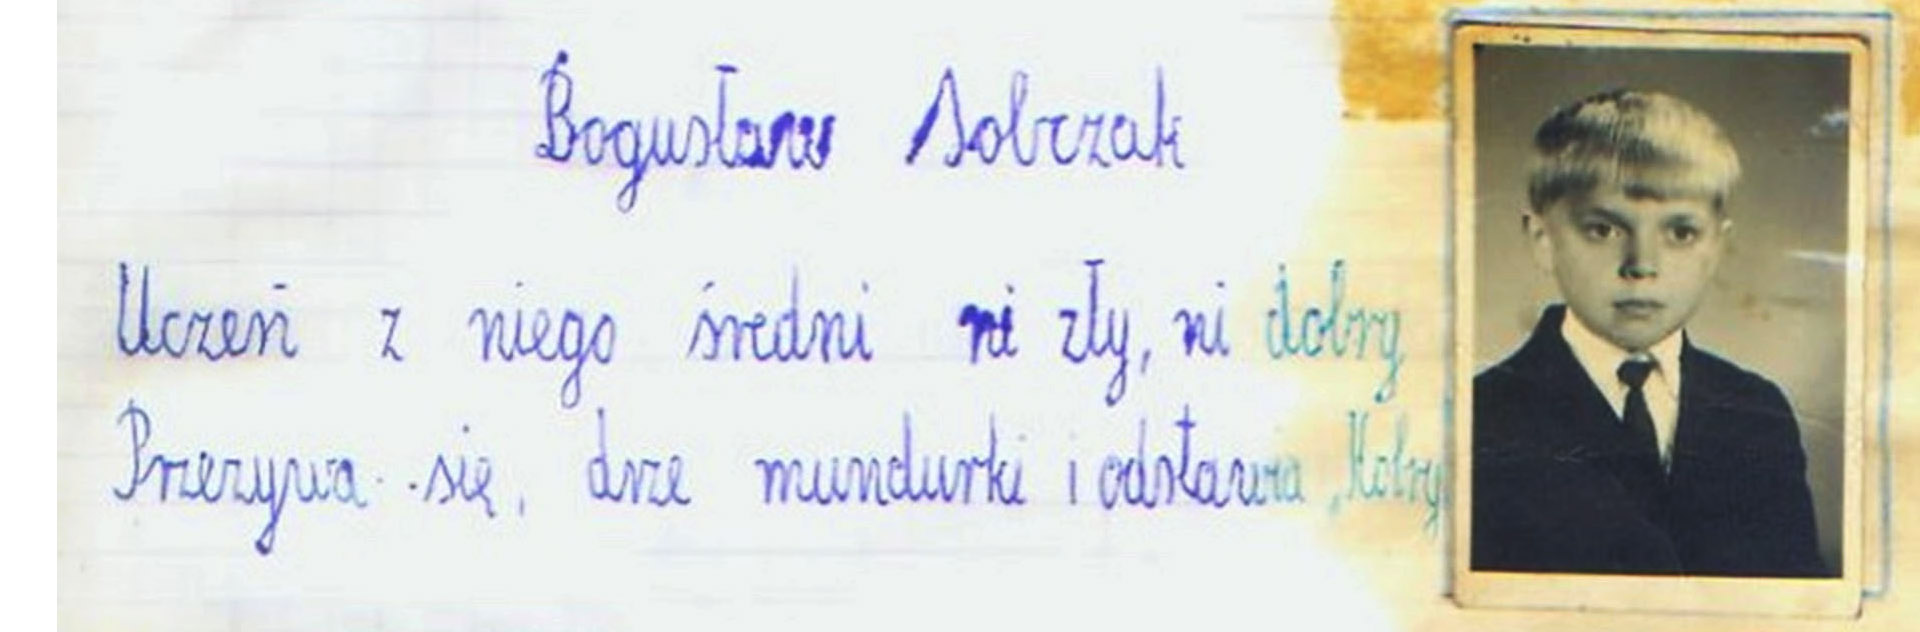 Bogusław Sobczak
Uczeń z niego średni ni zły, ni dobry
Przezywa się, drze mundurki i odstawia „Kobry